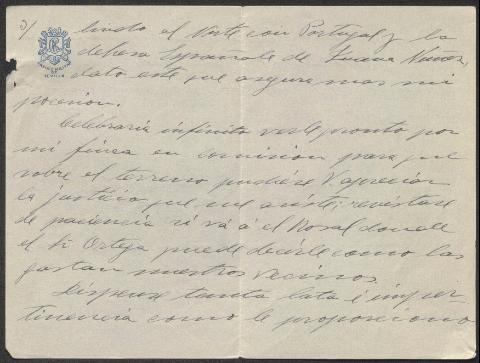 3/
lindo al Norte con Portugal y la
dehesa Española de Juana Nuñez,
dato este que asegura mas mi
posecion.
Celebraria infinito verle pronto por
mi finca en comision para que
sobre el terreno pudiese V. apreciar
la justicia que me asiste; revistase
de paciencia si vá á el Rosal donde
el Sr Ortega puede decirle como las
gastan nuestros vecinos.
Dispense tanta lata é imper-
tinencia como le proporciono